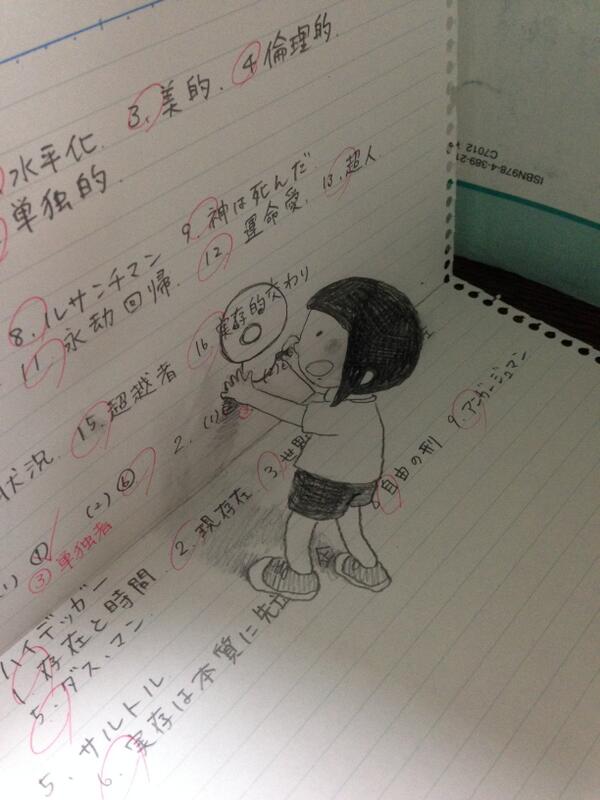 水平化 3. 美的. 4 倫理的.
単独的
8. ルサンチマン 9. 神は死んだ
11. 永劫回帰. 12 運命愛. 13. 超人
状況. 15. 超越者 16 実存的交わり
(2) ⑥ 2.
③ 単独者
ハイデッガー
1. 存在と時間 2. 現存在 3. 世界
5. ダス・マン
5. サルトル
6. 実存は本質に先立 8 自由の刑 9. アンガージュマン
ISBN978-4-389-21
C7012